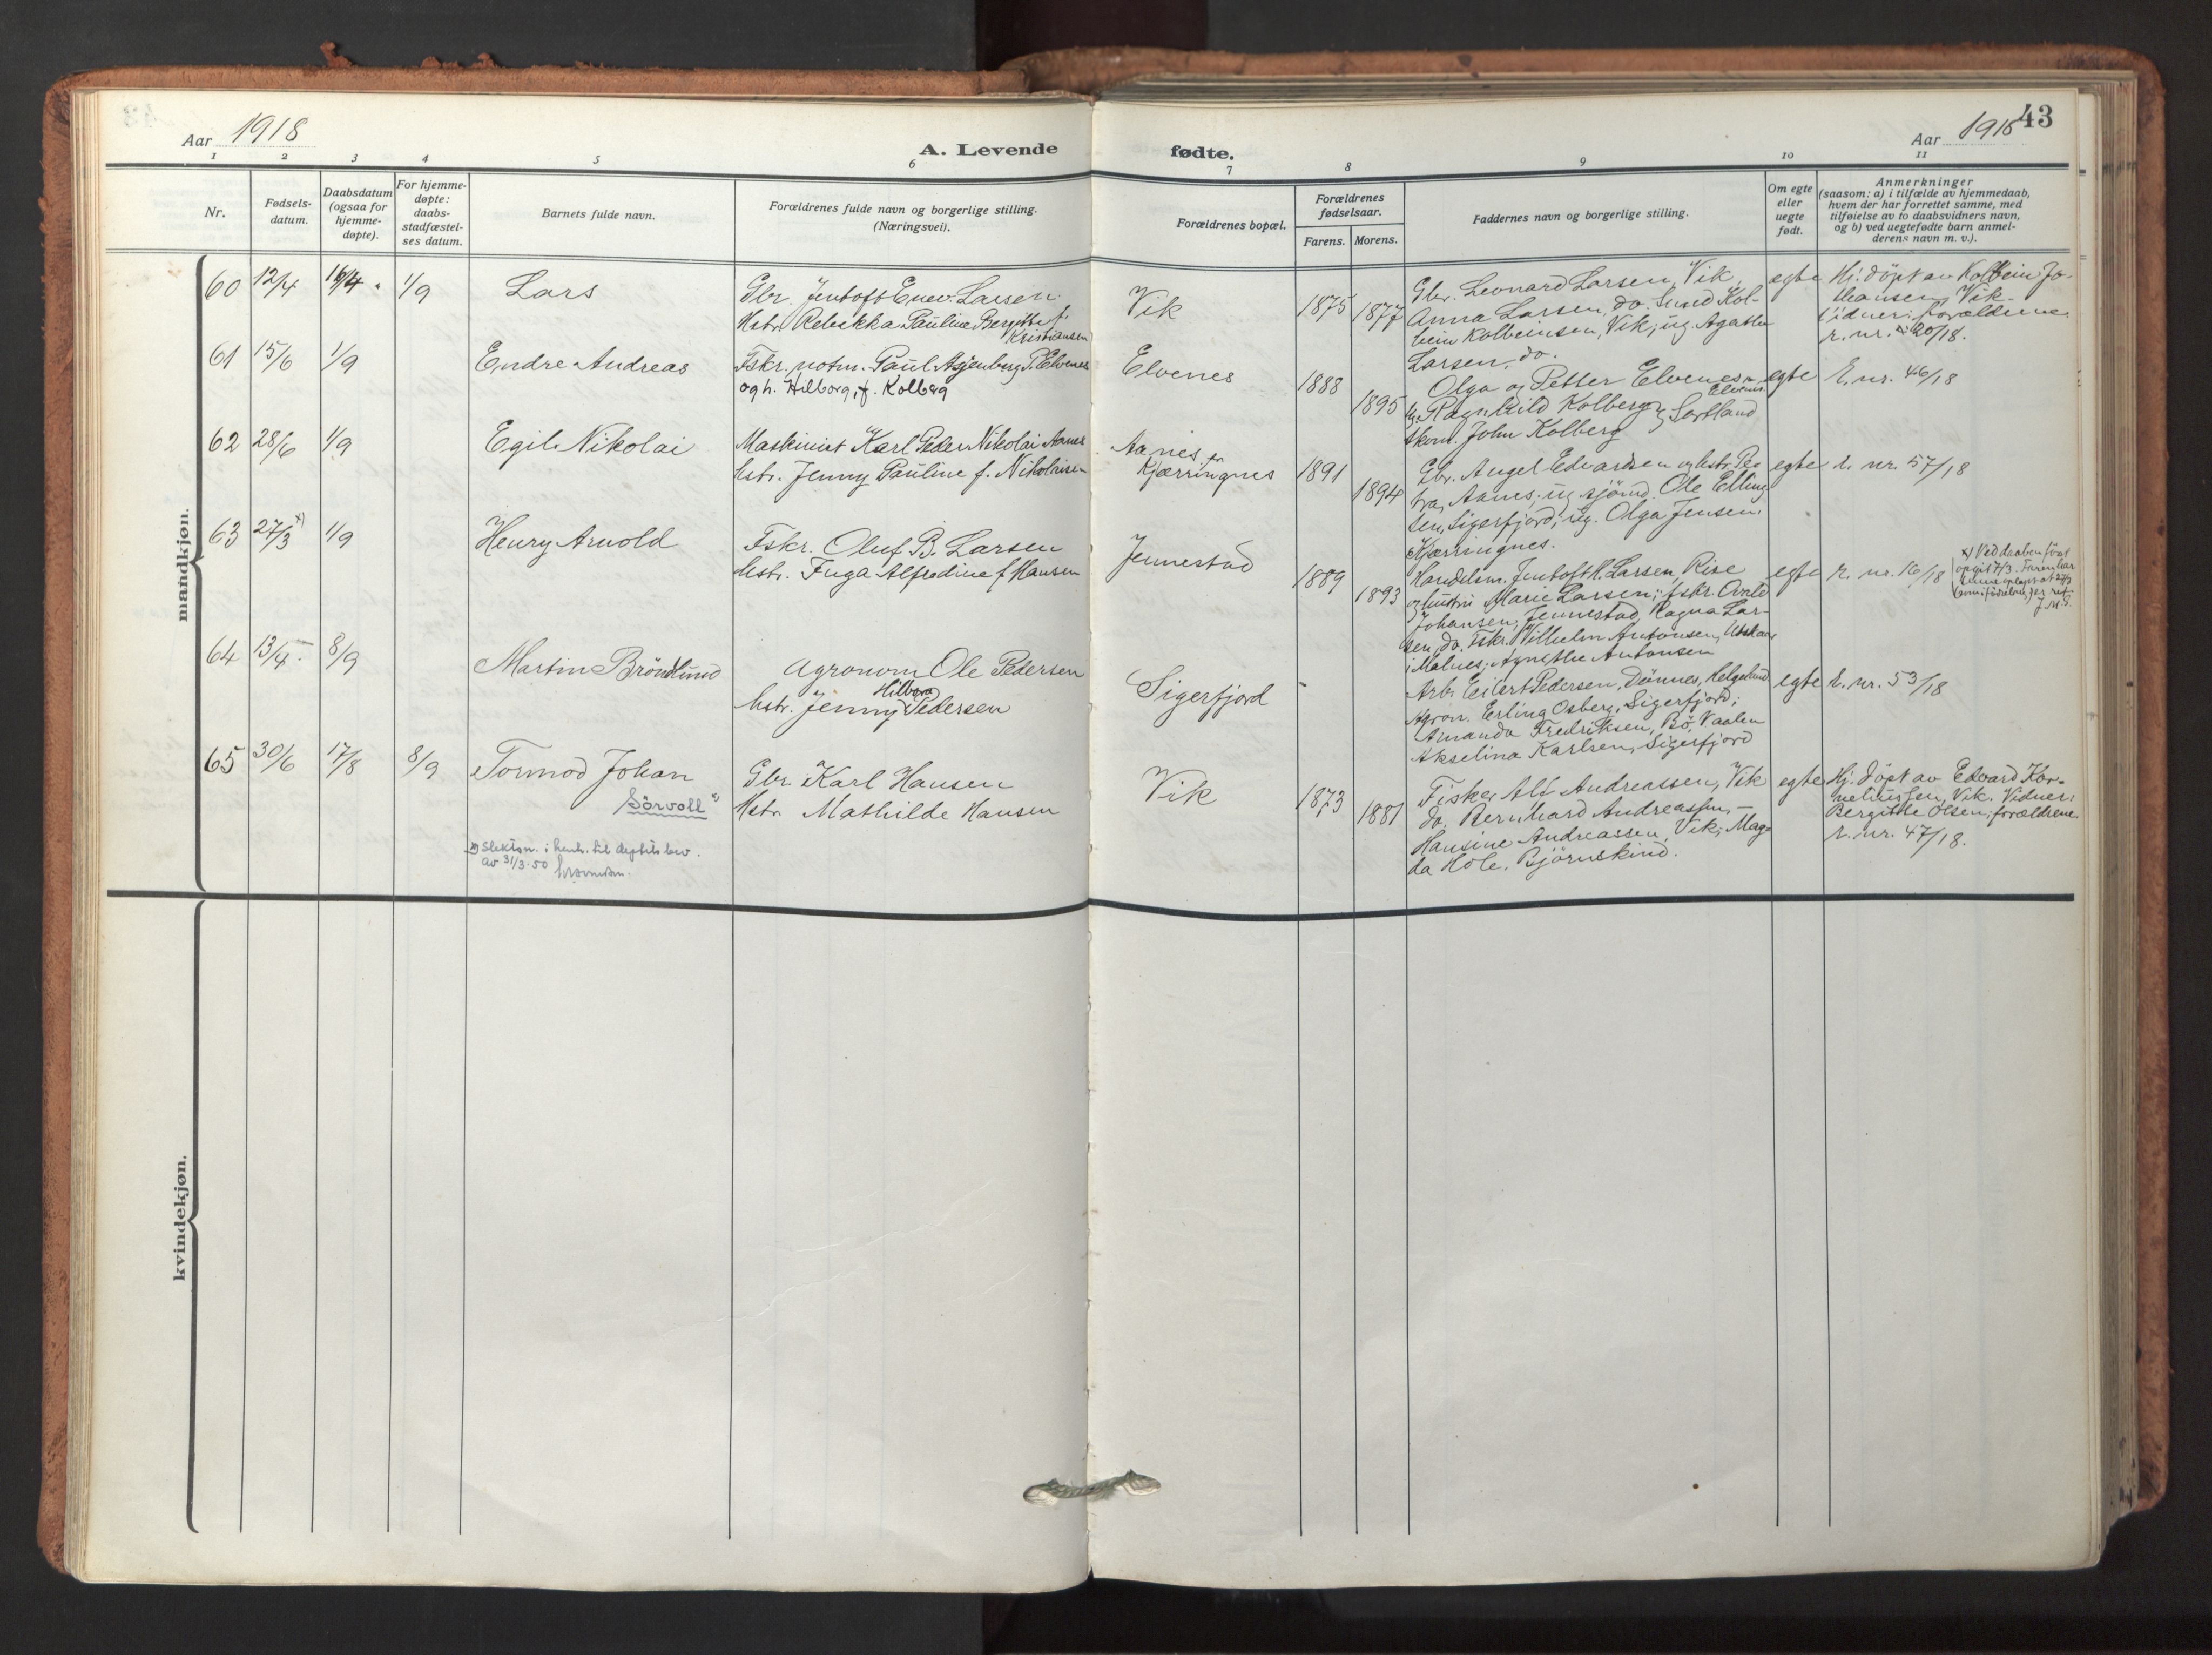 Aar 1918
A. Levende fødte.
Aar 1918
43
1 2 3 4 5 6 7 8 9 10 11
Nr.
Fødsels-
datum.
Daabsdatum
(ogsaa for
hjemme-
døpte).
For hjemme-
døpte:
daabs-
stadfæstel-
ses datum.
Barnets fulde navn.
Forældrenes fulde navn og borgerlige stilling.
(Næringsvei).
Forældrenes bopæl.
Forældrenes
fødselsaar.
Farens. Morens.
Faddernes navn og borgerlige stilling.
Om egte
eller
uegte
født.
Anmerkninger
(saasom: a) i tilfælde av hjemmedaab,
hvem der har forrettet samme, med
tilføielse av to daabsvidners navn,
og b) ved uegtefødte barn anmel-
derens navn m. v.).
mandkjøn.
60 12/4 16/4 1/9 Lars
Gbr. Jentoft Enev. Larsen
Hstr. Rebekka Pauline Bergitte f.
Kristiansen
Vik
1875 1877
Gbr. Leonard Larsen, Vik,
Anna Larsen, do. Smed Kol-
bein Kolbeinsen, Vik; ug. Agathe
Larsen, do.
egte
Hj. döpt av Kolbein Jo-
hansen, Vik.
Vidner: forældrene.
r. nr. 20/18.
61 15/6 1/9 Endre Andreas
Fskr. notm. Paul Asjenberg P. Elvenes
og h. Hilborg, f. Kolberg
Elvenes
1888 1895
Olga og Petter Elvenes, Elvenes
Ragnhild Kolberg, Sortland
skom. John Kolberg
egte
r. nr. 46/18
62 28/6 1/9 Egil Nikolai
Maskinist Karl Peder Nikolai Aanes
hstr. Jenny Pauline f. Nikolaisen
Aanes
Kjærringnes
1891 1894
Gbr. Angel Edvardsen og hstr. Pe-
tra, Aanes; ug. sjömd. Ole Elling-
sen, Sigerfjord; ug. Olga Jensen,
Kjærringnes.
egte
r. nr. 57/18
63 27/3 x) 1/9 Henry Arnold
Fskr. Oluf B. Larsen
hstr. Inga Alfredine f. Hansen
Jennestad
1889 1893
Handelsm. Jentoft H. Larsen, Rise
og hustru Marie Larsen; fskr.
Johansen, Jennestad, Ragna Lar-
sen, do. Fskr. Vilhelm Antonsen,
i Malnes; Agnethe Antonsen
egte
r. nr. 16/18
x) Ved daaben först
opgit 7/3. Faren har
at 27/3
er ret
64 13/4 8/9 Martin Brönlund
Agronom Ole Pedersen
hstr. Jenny Hilbora Pedersen
Sigerfjord
-
Arb. Eilert Pedersen, Dönnes, Helgeland
Agron. Erling Osberg, Sigerfjord;
Amanda Fredriksen, Bö, Vaalen
Akselina Karlsen, Sigerfjord
egte
r. nr. 53/18
65 30/6 17/8 8/9 Tormod Johan
Sörvoll x)
Gbr. Karl Hansen
Hstr. Mathilde Hansen
Vik
1873 1881
Fisker Alf Andreassen, Vik
do. Bernhard Andreassen, —
Hansine Andreassen, Vik; Mag-
da Hole, Bjørnskind.
egte
Hj. döpt av Edvard Kor-
neliussen, Vik. Vidner:
Bergithe Olsen; forældrene.
r. nr. 47/18.
x) Slektsn. i henh. til deptets bev.
av 31/3-50
kvindekjøn.